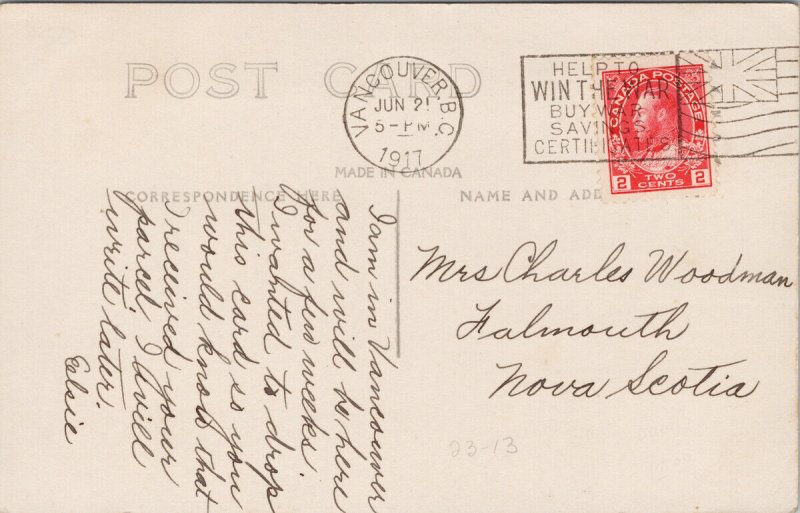 POST CARD
VANCOUVER, B.C.
JUN 21
5-PM
1917
HELP TO
WIN THE WAR
BUY WAR
SAVINGS
CERTIFICATES
CANADA POSTAGE
2 TWO CENTS 2
MADE IN CANADA
CORRESPONDENCE HERE
NAME AND ADD
I am in Vancouver
and will be here
for a few weeks
I wanted to drop
this card so you
would know that
I received your
parcel I will
write later.
Elsie
Mrs Charles Woodman
Falmouth
Nova Scotia
23-13